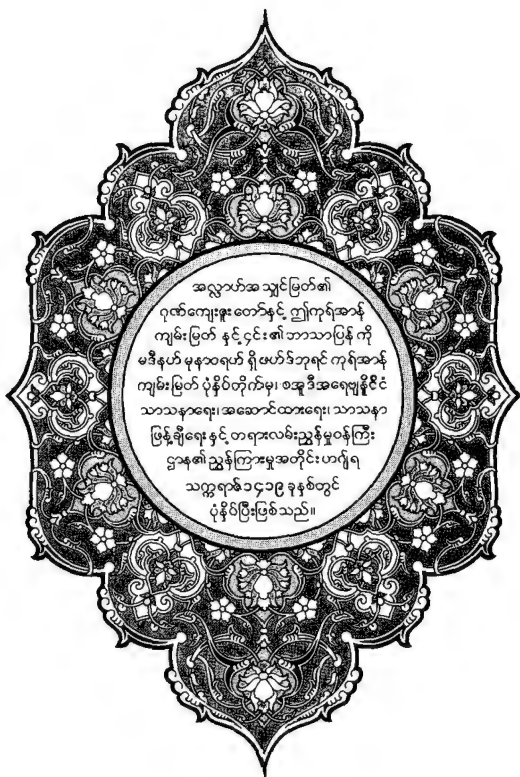 အလ္လာဟ်အသျှင်မြတ်၏
ဂုဏ်ကျေးဇူးတော်နှင့် ဤကုရ်အာန်
ကျမ်းမြတ် နှင့်၄င်း၏ဘာသာပြန် ကို
မဒီနဟ် မုနာဝရဟ် ရှိ ဖဟ်ဒ်ဘုရင် ကုရ်အာန်
ကျမ်းမြတ် ပုံနှိပ်တိုက်မှ၊ စအူဒီအရေဗျနိုင်ငံ
သာသနာရေး၊အဆောင်ထားရေး၊သာသနာ
ဖြန့်ချီရေး နှင့် တရားလမ်းညွှန်မှုဝန်ကြီး
ဌာန၏ ညွှန်ကြားမှုအတိုင်း ဟဂျ်ရ
သက္ကရာဇ် ၁၄၁၉ ခုနှစ်တွင်
ပုံနှိပ်ပြီးဖြစ်သည်။